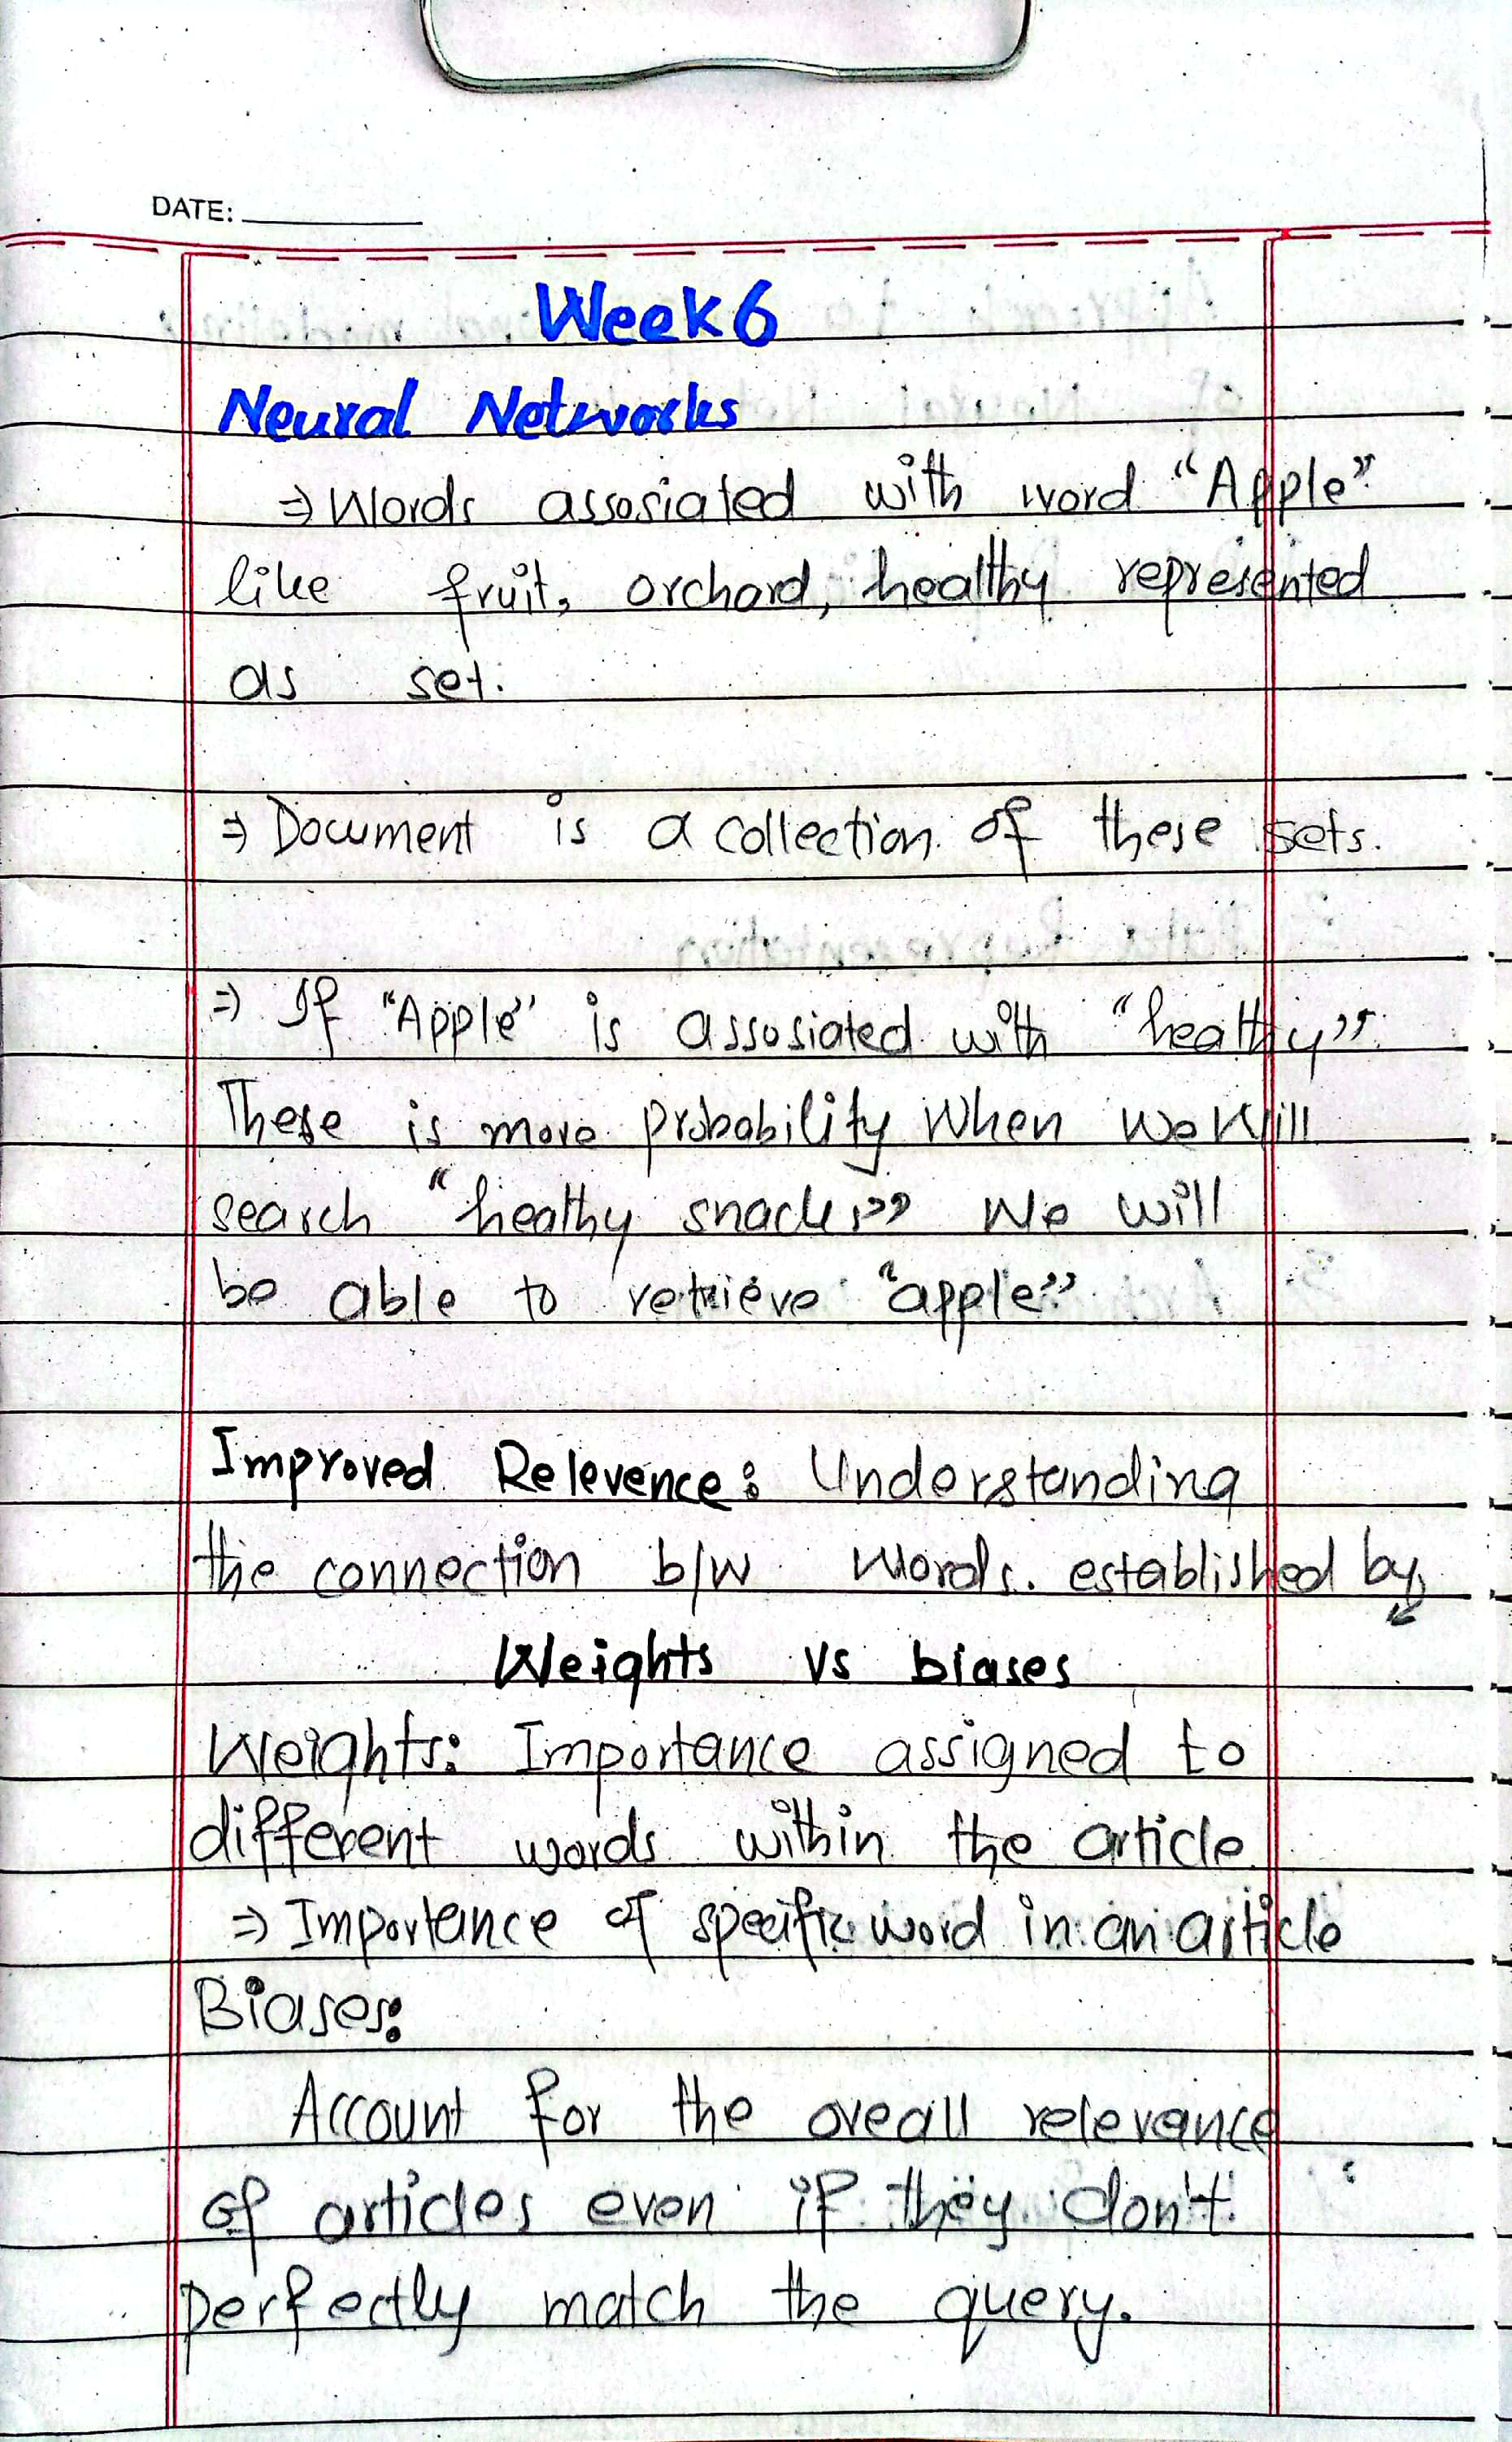 DATE:
Week 6
Neural Networks
⇒ Words assosiated with word "Apple"
like fruit, orchard, healthy represented
as set.
⇒ Document is a collection of these sets.
⇒ If "Apple" is assosiated with "healthy".
There is more probability when we will
search "healthy snacks" we will
be able to retrieve "apple"
Improved Relevence: Understanding
the connection b/w words. established by
Weights vs biases
Weights: Importance assigned to
different words within the article
⇒ Importance of specific word in an article
Biases:
Account for the oveall relevance
of articles even if they don't
perfectly match the query.